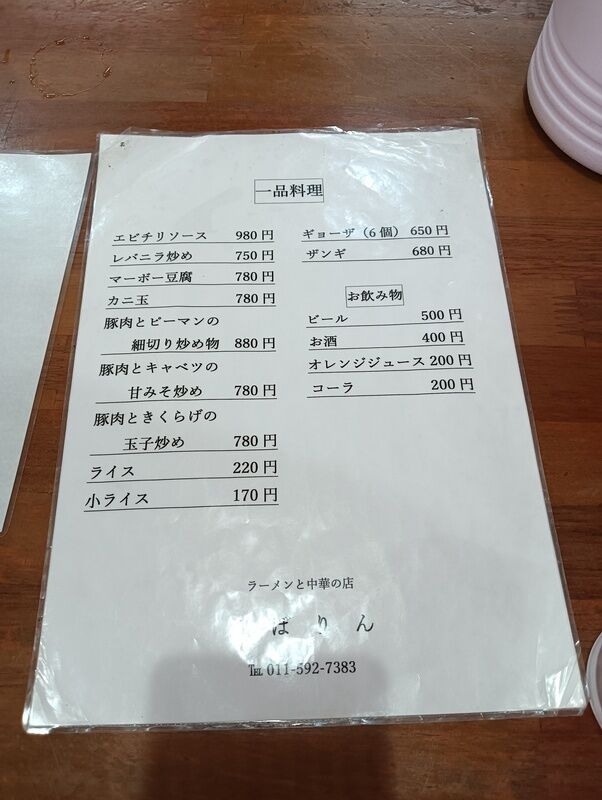 一品料理
エビチリソース 980円
レバニラ炒め 750円
マーボー豆腐 780円
カニ玉 780円
豚肉とピーマンの
細切り炒め物 880円
豚肉とキャベツの
甘みそ炒め 780円
豚肉ときくらげの
玉子炒め 780円
ライス 220円
小ライス 170円
ギョーザ（6個） 650円
ザンギ 680円
お飲み物
ビール 500円
お酒 400円
オレンジジュース 200円
コーラ 200円
ラーメンと中華の店
ばりん
℡ 011-592-7383